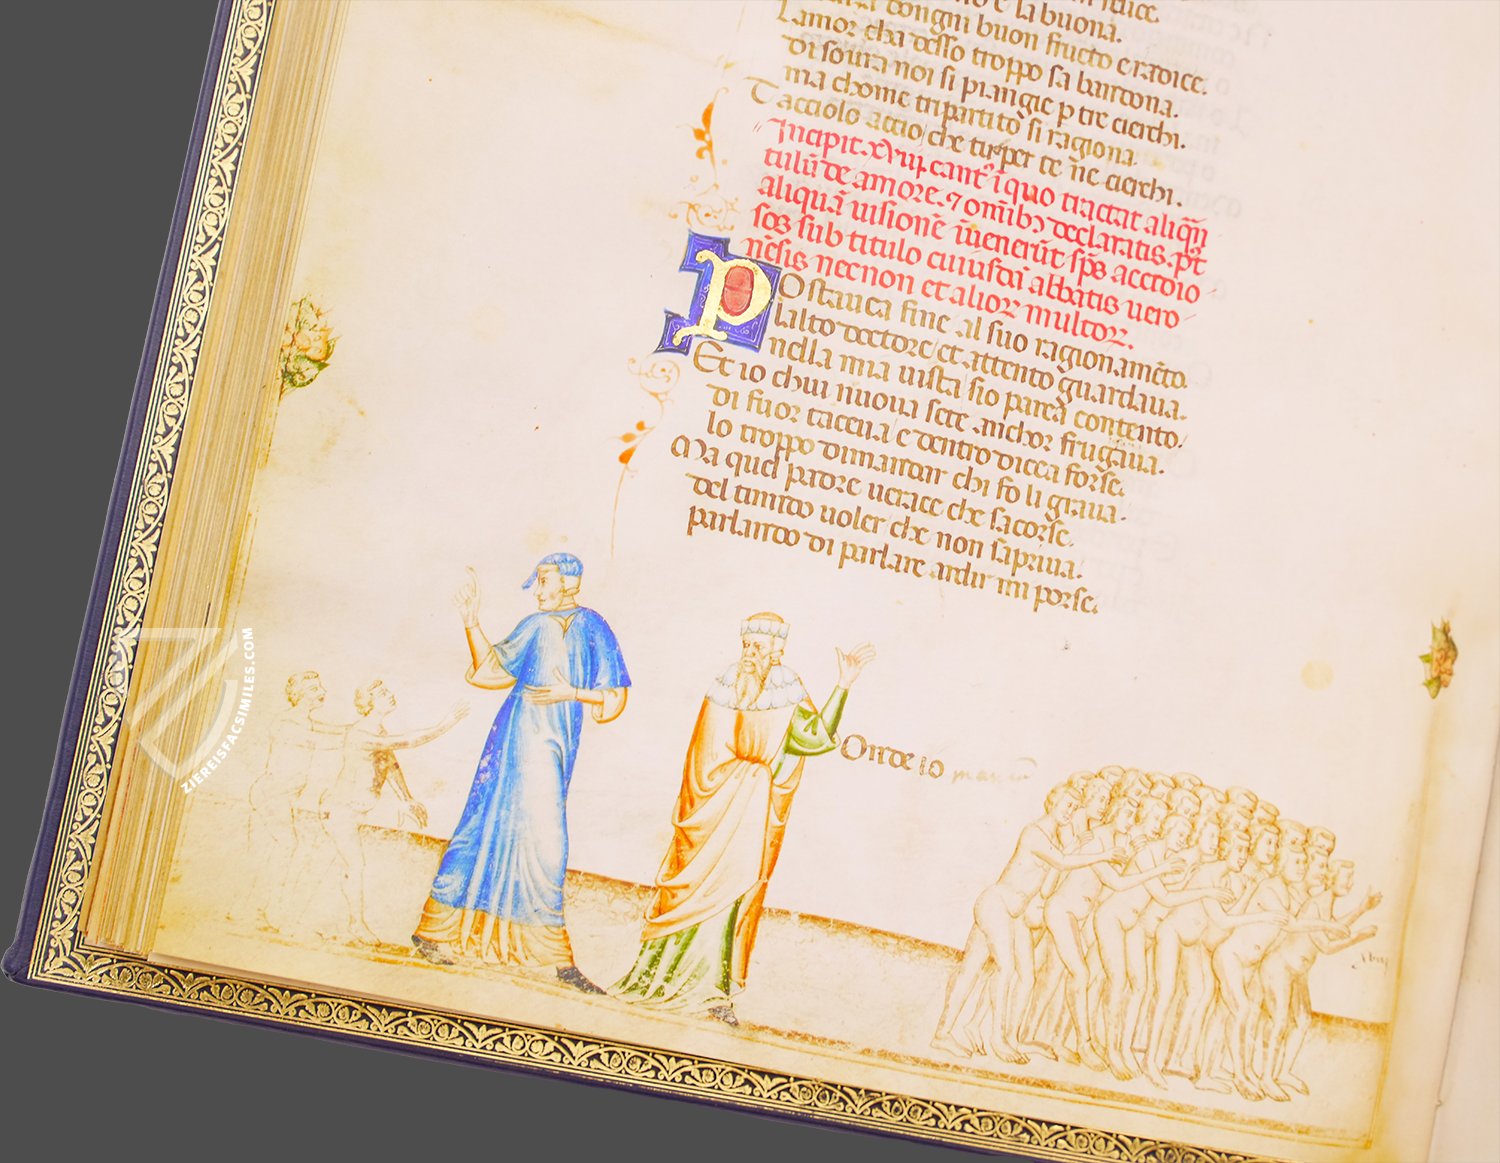 o e la buona.
dongni buon fructo e radice.
Lamor cha desso troppo sa bandona.
di soura noi si piangie p tre cierchi.
ma chome tripartito si ragiona
Tacciolo accio che tu per te ne cierchi.
Incipit. xviij. cant' ī quo tractat aliqn
tulū de amore. ⁊ omībꝫ declaratis. pt
aliquā uisionē īuenerūt sps accidio
sos sub titulo cuiusdā abbatis uero
nēsis necnon et alioꝝ multoꝝ.
POstauea fine al suo ragionamēto
lalto doctore et attento guardaua.
nella mia uista sio parea contento.
Et io chui nuoua sete anchor frugaua.
di fuor tacea e dentro dicea forse.
lo troppo dimandar chi fo li graua.
Ma quel padre uerace che sacorse.
del timido uoler che non sapriua.
parlando di parlare ardir mi porse.
Onde io
ZIEREISFACSIMILES.COM